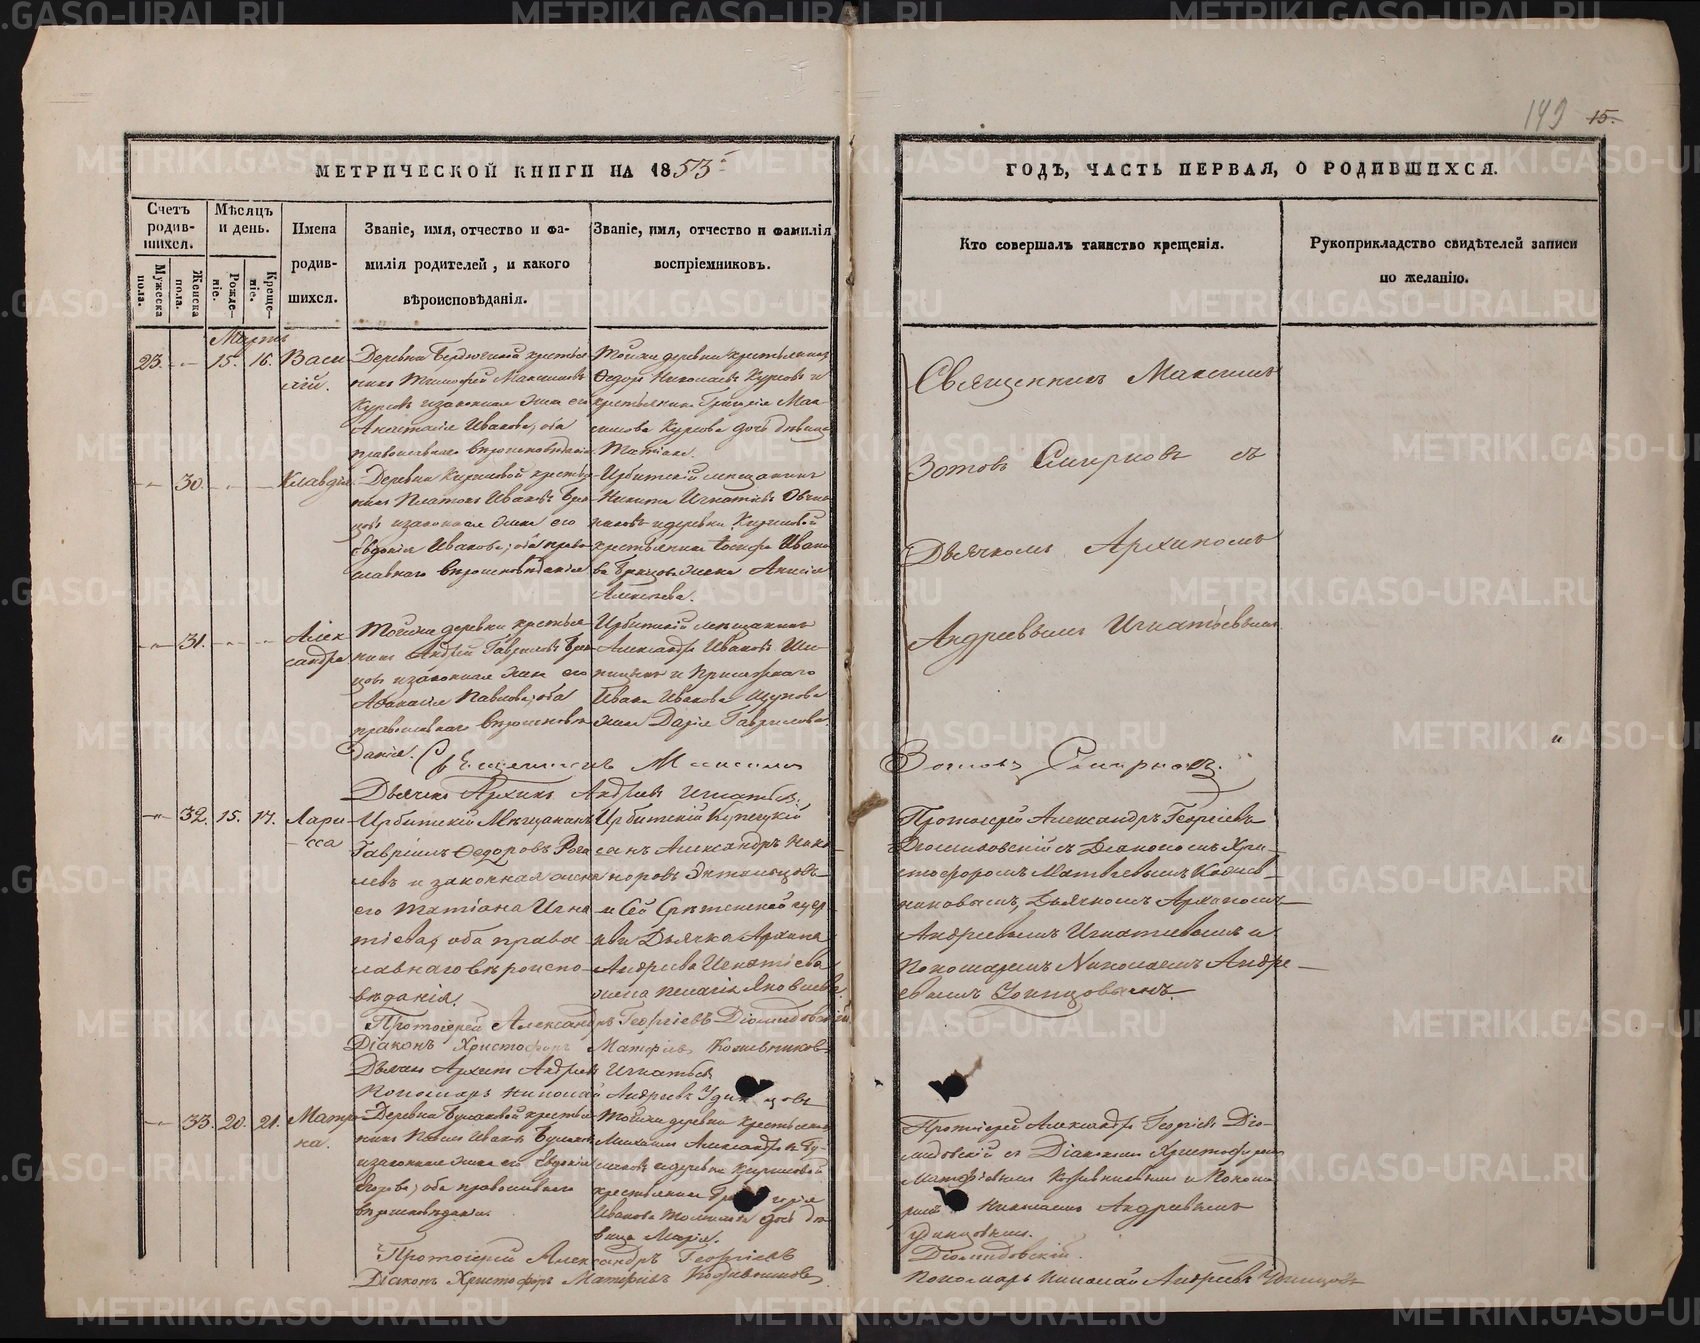 149 15.
МЕТРИЧЕСКОЙ КНИГИ НА 1853
ГОДЪ, ЧАСТЬ ПЕРВАЯ, О РОДИВШИХСЯ.
Счетъ родив-шихся.
Мужеска пола.
Женска пола.
Мѣсяцъ и день.
Рожде-ніе.
Креще-ніе.
Имена
родив-
шихся.
Званіе, имя, отчество и фа-
милія родителей, и какого
вѣроисповѣданія.
Званіе, имя, отчество и фамилія
воспріемниковъ.
Кто совершалъ таинство крещенія.
Рукоприкладство свидѣтелей записи
по желанію.
Мартъ
23. 15. 16. Васи
лій.
Деревни крестья
нинъ Тимофей Максимовъ
и законная жена его
Анастасія Иванова, оба
православнаго вѣроисповѣданія
Тойже деревни крестьянинъ
Федоръ Николаевъ и
крестьянина Григорія Мак
симова дочь дѣвица
Татіана.
Священникъ Максимъ
Зотовъ Смирновъ съ
Дьячкомъ Архипомъ
Андреевымъ Игнатьевымъ
30. Клавдія
Деревни Кириловой крестья
нинъ Платонъ Ивановъ
и законная жена его
Евдокія Иванова, оба право
славнаго вѣроисповѣданія
Ирбитскій мѣщанинъ
Никита Игнатіевъ Овчин
никовъ и деревни Кириловой
крестьянина Іосифа Ивано
ва жена Анисія
Алексѣева.
31. Алек
сандра
Тойже деревни крестья
нинъ Андрей Гавриловъ
и законная жена его
Афанасія Павлова, оба
православнаго вѣроисповѣ
данія.
Ирбитскій мѣщанинъ
Александръ Ивановъ
Ивана Иванова
жена Дарія Гаврилова.
Священникъ Максимъ
Зотовъ Смирновъ.
Дьячекъ Архипъ Андреевъ Игнатьевъ.
32. 15. 17. Лари
сса
Ирбитскій Мѣщанинъ
Гавріилъ Ѳедоровъ Рога
левъ и законная жена
его Татіана Игна
тіева, оба право
славнаго вѣроиспо
вѣданія.
Ирбитскій Купецкій
сынъ Александръ Ника
норовъ
и Сей Срѣтенской цер
кви Дьячка Архипа
Андреева Игнатіева
жена Пелагія Яковлева.
Протоіерей Александръ Георгіевъ
Діомидовскій съ Діакономъ Хри
стофоромъ Матвѣевымъ Кожев
никовымъ, Дьячкомъ Архипомъ
Андреевымъ Игнатіевымъ и
Пономаремъ Николаемъ Андре
евымъ Удинцовымъ.
Протоіерей Александръ Георгіевъ Діомидовскій
Діаконъ Христофоръ Матфіевъ Кожевниковъ
Дьячекъ Архипъ Андреевъ Игнатьевъ
Пономарь Николай Андреевъ Удинцовъ
33. 20. 21. Матро
на.
Деревни крестья
нинъ Павелъ Ивановъ
и законная жена его Евдокія
Егорова, оба православнаго
вѣроисповѣданія.
Тойже деревни крестьянинъ
Михаилъ Александровъ
и деревни Кириловой
крестьянина Григорія
Иванова дочь дѣ
вица Марія.
Протоіерей Александръ Георгіевъ Діо
мидовскій съ Діакономъ Христофоромъ
Матфіевымъ Кожевниковымъ и Понома
ремъ Николаемъ Андреевымъ
Удинцовымъ.
Протоіерей Александръ Георгіевъ
Діомидовскій.
Діаконъ Христофоръ Матфіевъ Кожевниковъ
Пономарь Николай Андреевъ Удинцовъ
METRIKI.GASO-URAL.RU